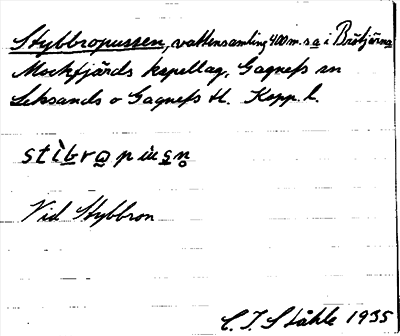 Stybbropussen, vattensamling 400 m. s a i Brötjärna
Mockfjärds kapellag, Gagnefs sn
Leksands o Gagnefs tl. Kopp. l.
stìbrapusn
Vid Stybbron
C. I. Ståhle 1935